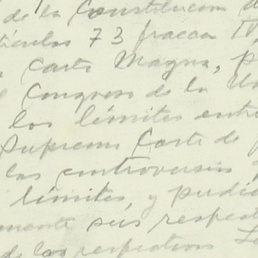 de la Constitucion d
tículos 73 fracca IV,
a Carta Magna, p
l Congreso de la Un
los límites entre
Suprema Corte de
las controversias
límites, y pudie
mente sus respect
de las respectivas Le